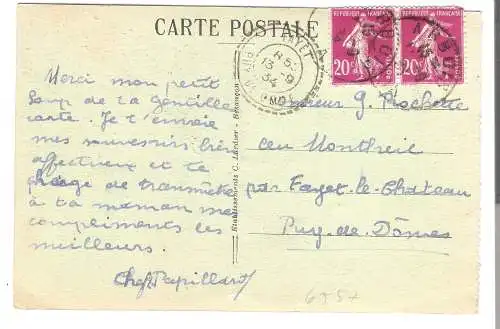 CARTE POSTALE
REPUBLIQUE FRANÇAISE
REPUBLIQUE FRANÇAISE
20c
20c
Merci mon petit
loup de ta gentille
carte. Je t'envoie
mes souvenirs bien
affectueux et te
charge de transmettre
à ta maman mes
compliments les
meilleurs.
Papillard
Etablissements C. Lardier - Besançon
FAYET
PUY-DE-DÔME
13-9
34
G.
Montheil
par Fayet-le-Chateau
Puy-de-Dômes